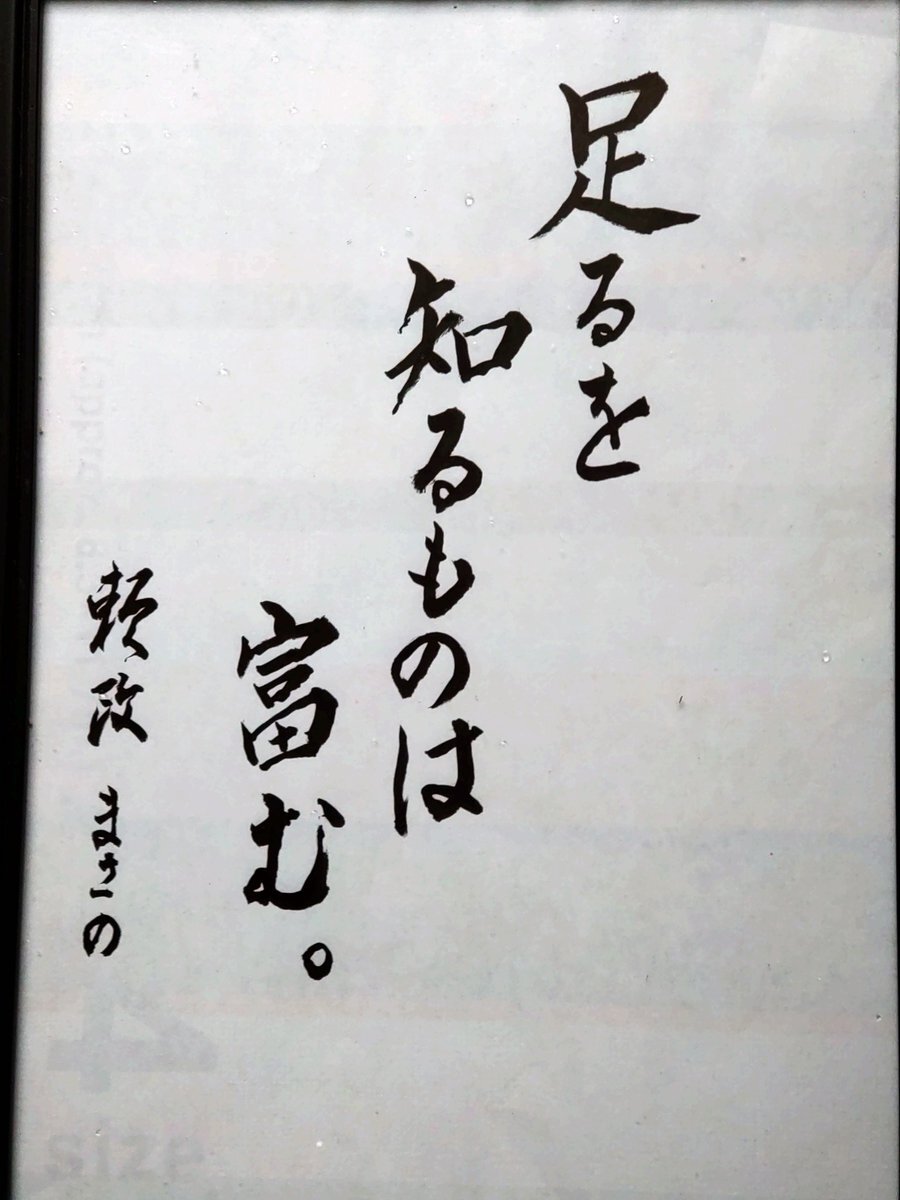 足るを
知るものは
富む。
頼政 まさの
4
size